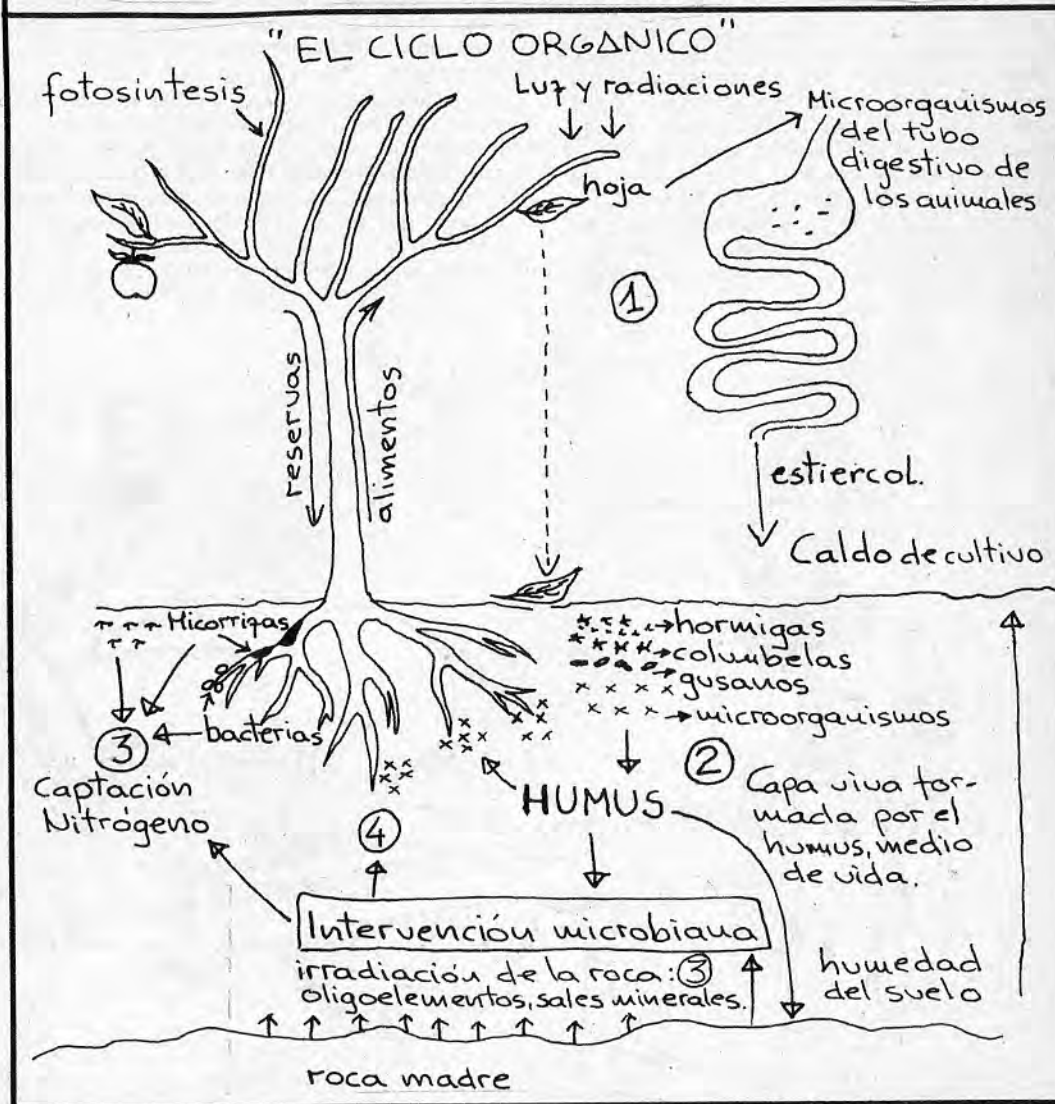 "EL CICLO ORGANICO"
fotosintesis
Luz y radiaciones
Microorganismos
del tubo
digestivo de
los animales
hoja
1
reservas
alimentos
estiercol.
Caldo de cultivo
Micorrizas
bacterias
3
Captación
Nitrógeno
hormigas
columbelas
gusanos
microorganismos
2
HUMUS
Capa viva for-
mada por el
humus, medio
de vida.
4
Intervención microbiana
irradiación de la roca: 3
oligoelementos, sales minerales.
humedad
del suelo
roca madre